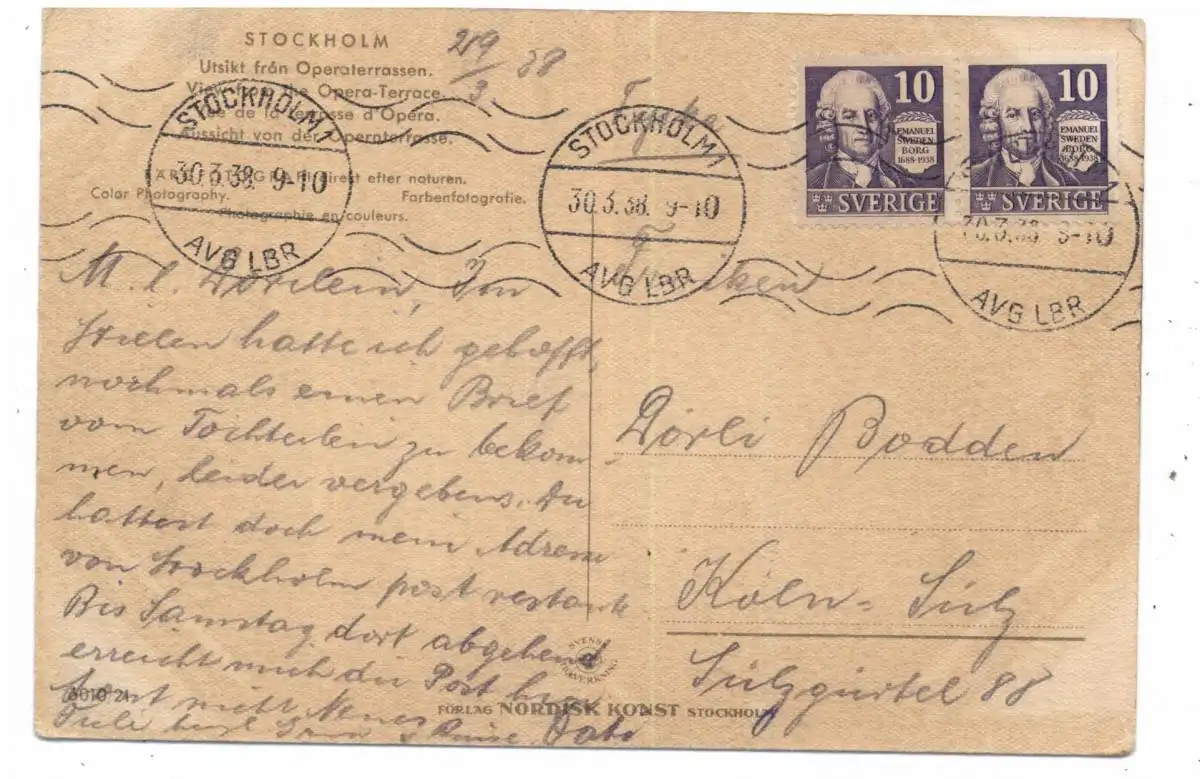 STOCKHOLM
Utsikt från Operaterrassen.
View from the Opera-Terrace.
de la terrasse d'Opéra.
Aussicht von der Operaterrasse.
direkt efter naturen.
Color Photography. Farbenfotografie.
Photographie en couleurs.
29/3 38
STOCKHOLM 1
30.3.38. 9-10
AVG LBR
STOCKHOLM 1
30.3.38. 9-10
AVG LBR
10
EMANUEL
SWEDEN
BORG
1688-1938
SVERIGE
10
EMANUEL
SWEDEN
BORG
1688-1938
SVERIGE
30.3.38 9-10
AVG LBR
M. l. Dörilein, Im
Stillen hatte ich gehofft,
nochmals einen Brief
vom Töchterlein zu bekom-
men, leider vergebens. Du
hattest doch mein Adresse
von Stockholm post restante
Bis Samstag dort abgehend
erreicht mich die Post
nicht Neues
Viele
Dörli Bodden
Köln-Sülz
Sülzgürtel 88
6010 21
FÖRLAG NORDISK KONST STOCKHOLM